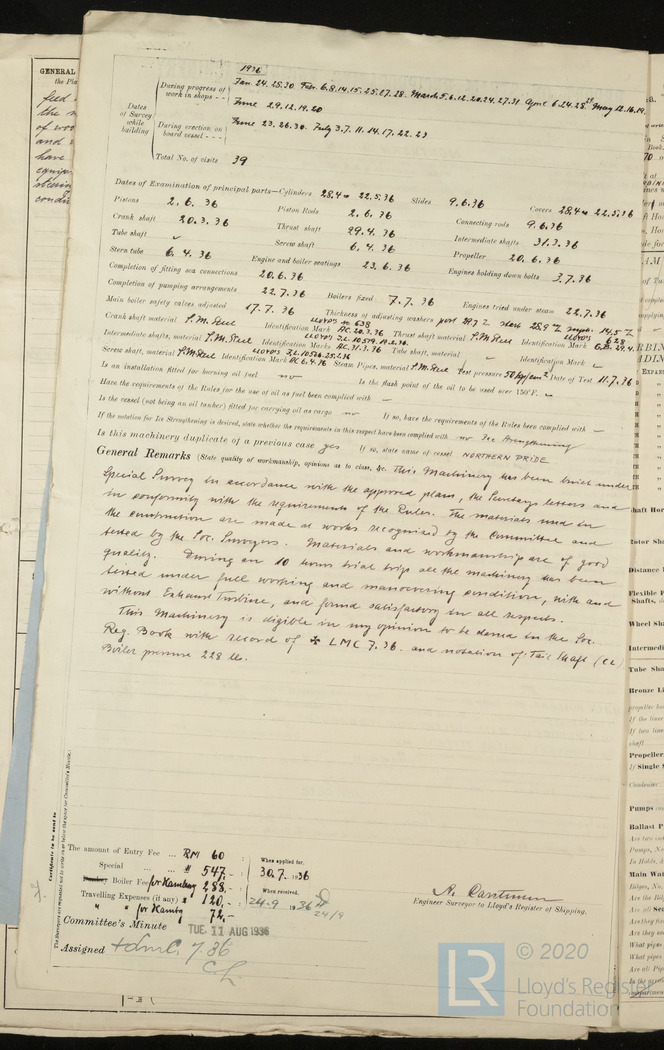 1936
Dates of Survey while building
During progress of work in shops - - Jan. 24.28.30 Feb. 6.8.14.15.25.27.28 March 5.6.12.20.24.27.31 April 6.24.28 May 12.16.19.
June 2.9.12.19.20
During erection on board vessel - - - June 23.26.30. July 3.7.11.14.17.22.23
Total No. of visits 39
Dates of Examination of principal parts—Cylinders 28.4 22.5.36 Slides 9.6.36 Covers 28.4 22.5.36
Pistons 2.6.36 Piston Rods 2.6.36 Connecting rods 9.6.36
Crank shaft 20.3.36 Thrust shaft 29.4.36 Intermediate shafts 31.3.36
Tube shaft Screw shaft 6.4.36 Propeller 20.6.36
Stern tube 6.4.36 Engine and boiler seatings 23.6.36 Engines holding down bolts 3.7.36
Completion of fitting sea connections 20.6.36
Completion of pumping arrangements 22.7.36 Boilers fixed 7.7.36 Engines tried under steam 22.7.36
Main boiler safety valves adjusted 17.7.36 Thickness of adjusting washers port
Crank shaft material S.M. Steel Identification Mark LLOYD'S 638 AC.20.3.36 Thrust shaft material S.M. Steel Identification Mark LLOYD'S 628
Intermediate shafts, material S.M. Steel Identification Marks AC.31.3.36 Tube shaft, material Identification Mark
Screw shaft, material S.M. Steel Identification Mark AC 6.4.36 Steam Pipes, material S.M. Steel Test pressure 50 kg/cm² Date of Test 11.7.36
Is an installation fitted for burning oil fuel no Is the flash point of the oil to be used over 150°F.
Have the requirements of the Rules for the use of oil as fuel been complied with
Is the vessel (not being an oil tanker) fitted for carrying oil as cargo no If so, have the requirements of the Rules been complied with
If the notation for Ice Strengthening is desired, state whether the requirements in this respect have been complied with no Ice Strengthening
Is this machinery duplicate of a previous case yes If so, state name of vessel NORTHERN PRIDE
General Remarks (State quality of workmanship, opinions as to class, &c. This Machinery has been built under
Special Survey in accordance with the approved plans, the Secretary's letters and
in conformity with the requirements of the Rules. The materials used in
the construction are made at works recognised by the Committee and
tested by the Soc. Surveyors. Materials and workmanship are of good
quality. During an 10 hours trial trip all the machinery has been
tested under full working and manoeuvering condition, with and
without Exhaust Turbine, and found satisfactory in all respects.
This Machinery is eligible in my opinion to be classed in the Soc.
Reg. Book with record of ✠ LMC 7.36. and notation of Tail Shaft (CL)
Boiler pressure 228 lb.
Certificate to be sent to
The Surveyors are requested not to write on or below the space for Committee's Minute.
The amount of Entry Fee ... RM 60 : When applied for,
Special ... " 547,- : 30.7.1936
Boiler Fee for Hamburg 288,- : When received,
Travelling Expenses (if any) " 120,- : 24.9 1936 24/9
" for Hamburg 72,-
Engineer Surveyor to Lloyd's Register of Shipping.
Committee's Minute TUE. 11 AUG 1936
Assigned + LMC. 7.36
CL
GENERAL
© 2020
LR Lloyd's Register
Foundation